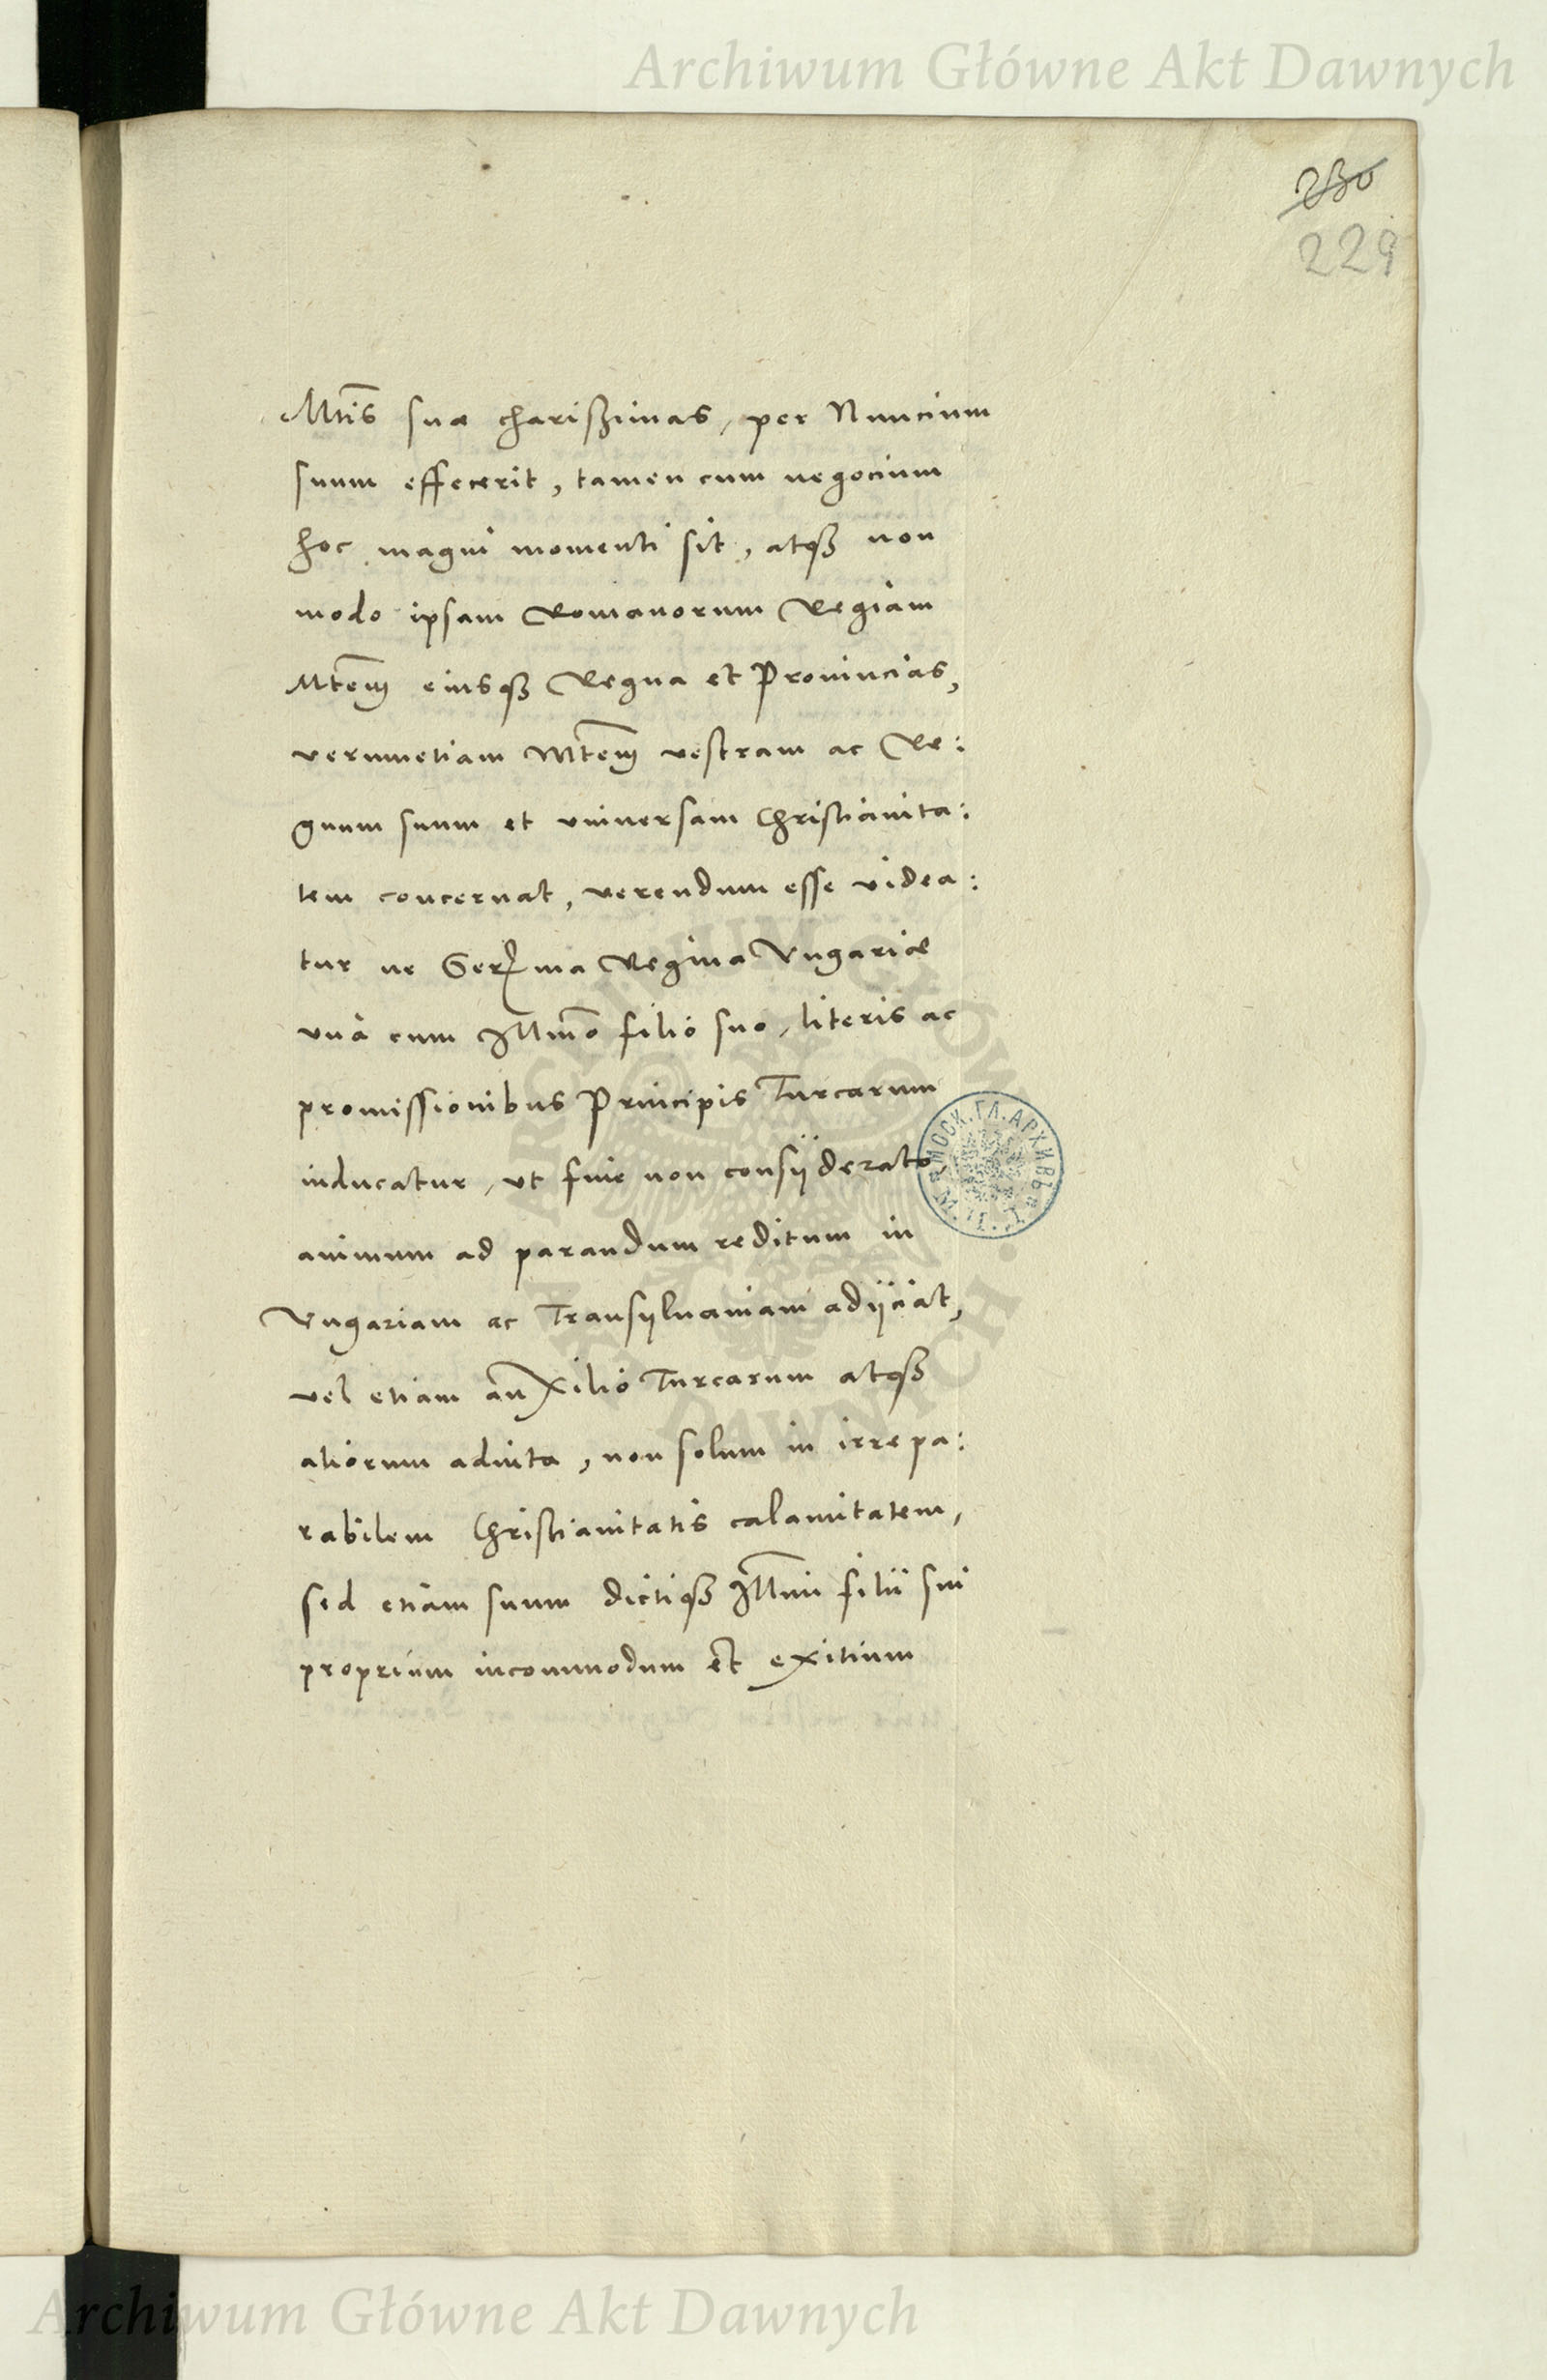 Archiwum Główne Akt Dawnych
230
229
Mtis suæ charißimas, per Nuncium
suum effecerit, tamen cum negocium
hoc magni momenti sit, atqȝ non
modo ipsam Romanorum Regiam
Mtem eiusqȝ Regna et Prouincias,
verumetiam Mtem vestram ac Re:
gnum suum et vniuersam Christianita:
tem concernat, verendum esse videa:
tur ne Serma Regina Vngariæ
vnà cum Illmo filio suo, literis ac
promissionibus Principis Turcarum
inducatur, vt fine non consÿderato
animum ad parandum reditum in
Vngariam ac Transyluaniam adÿciat,
vel etiam auxilio Turcarum atqȝ
aliorum adiuta, non solum in irrepa:
rabilem Christianitatis calamitatem,
sed etiam suum dictiqȝ Illmi filii sui
proprium incommodum et exitium
МОСК. ГЛ. АРХИВЪ
ARCHIWUM GŁÓWNE AKT DAWNYCH
Archiwum Główne Akt Dawnych